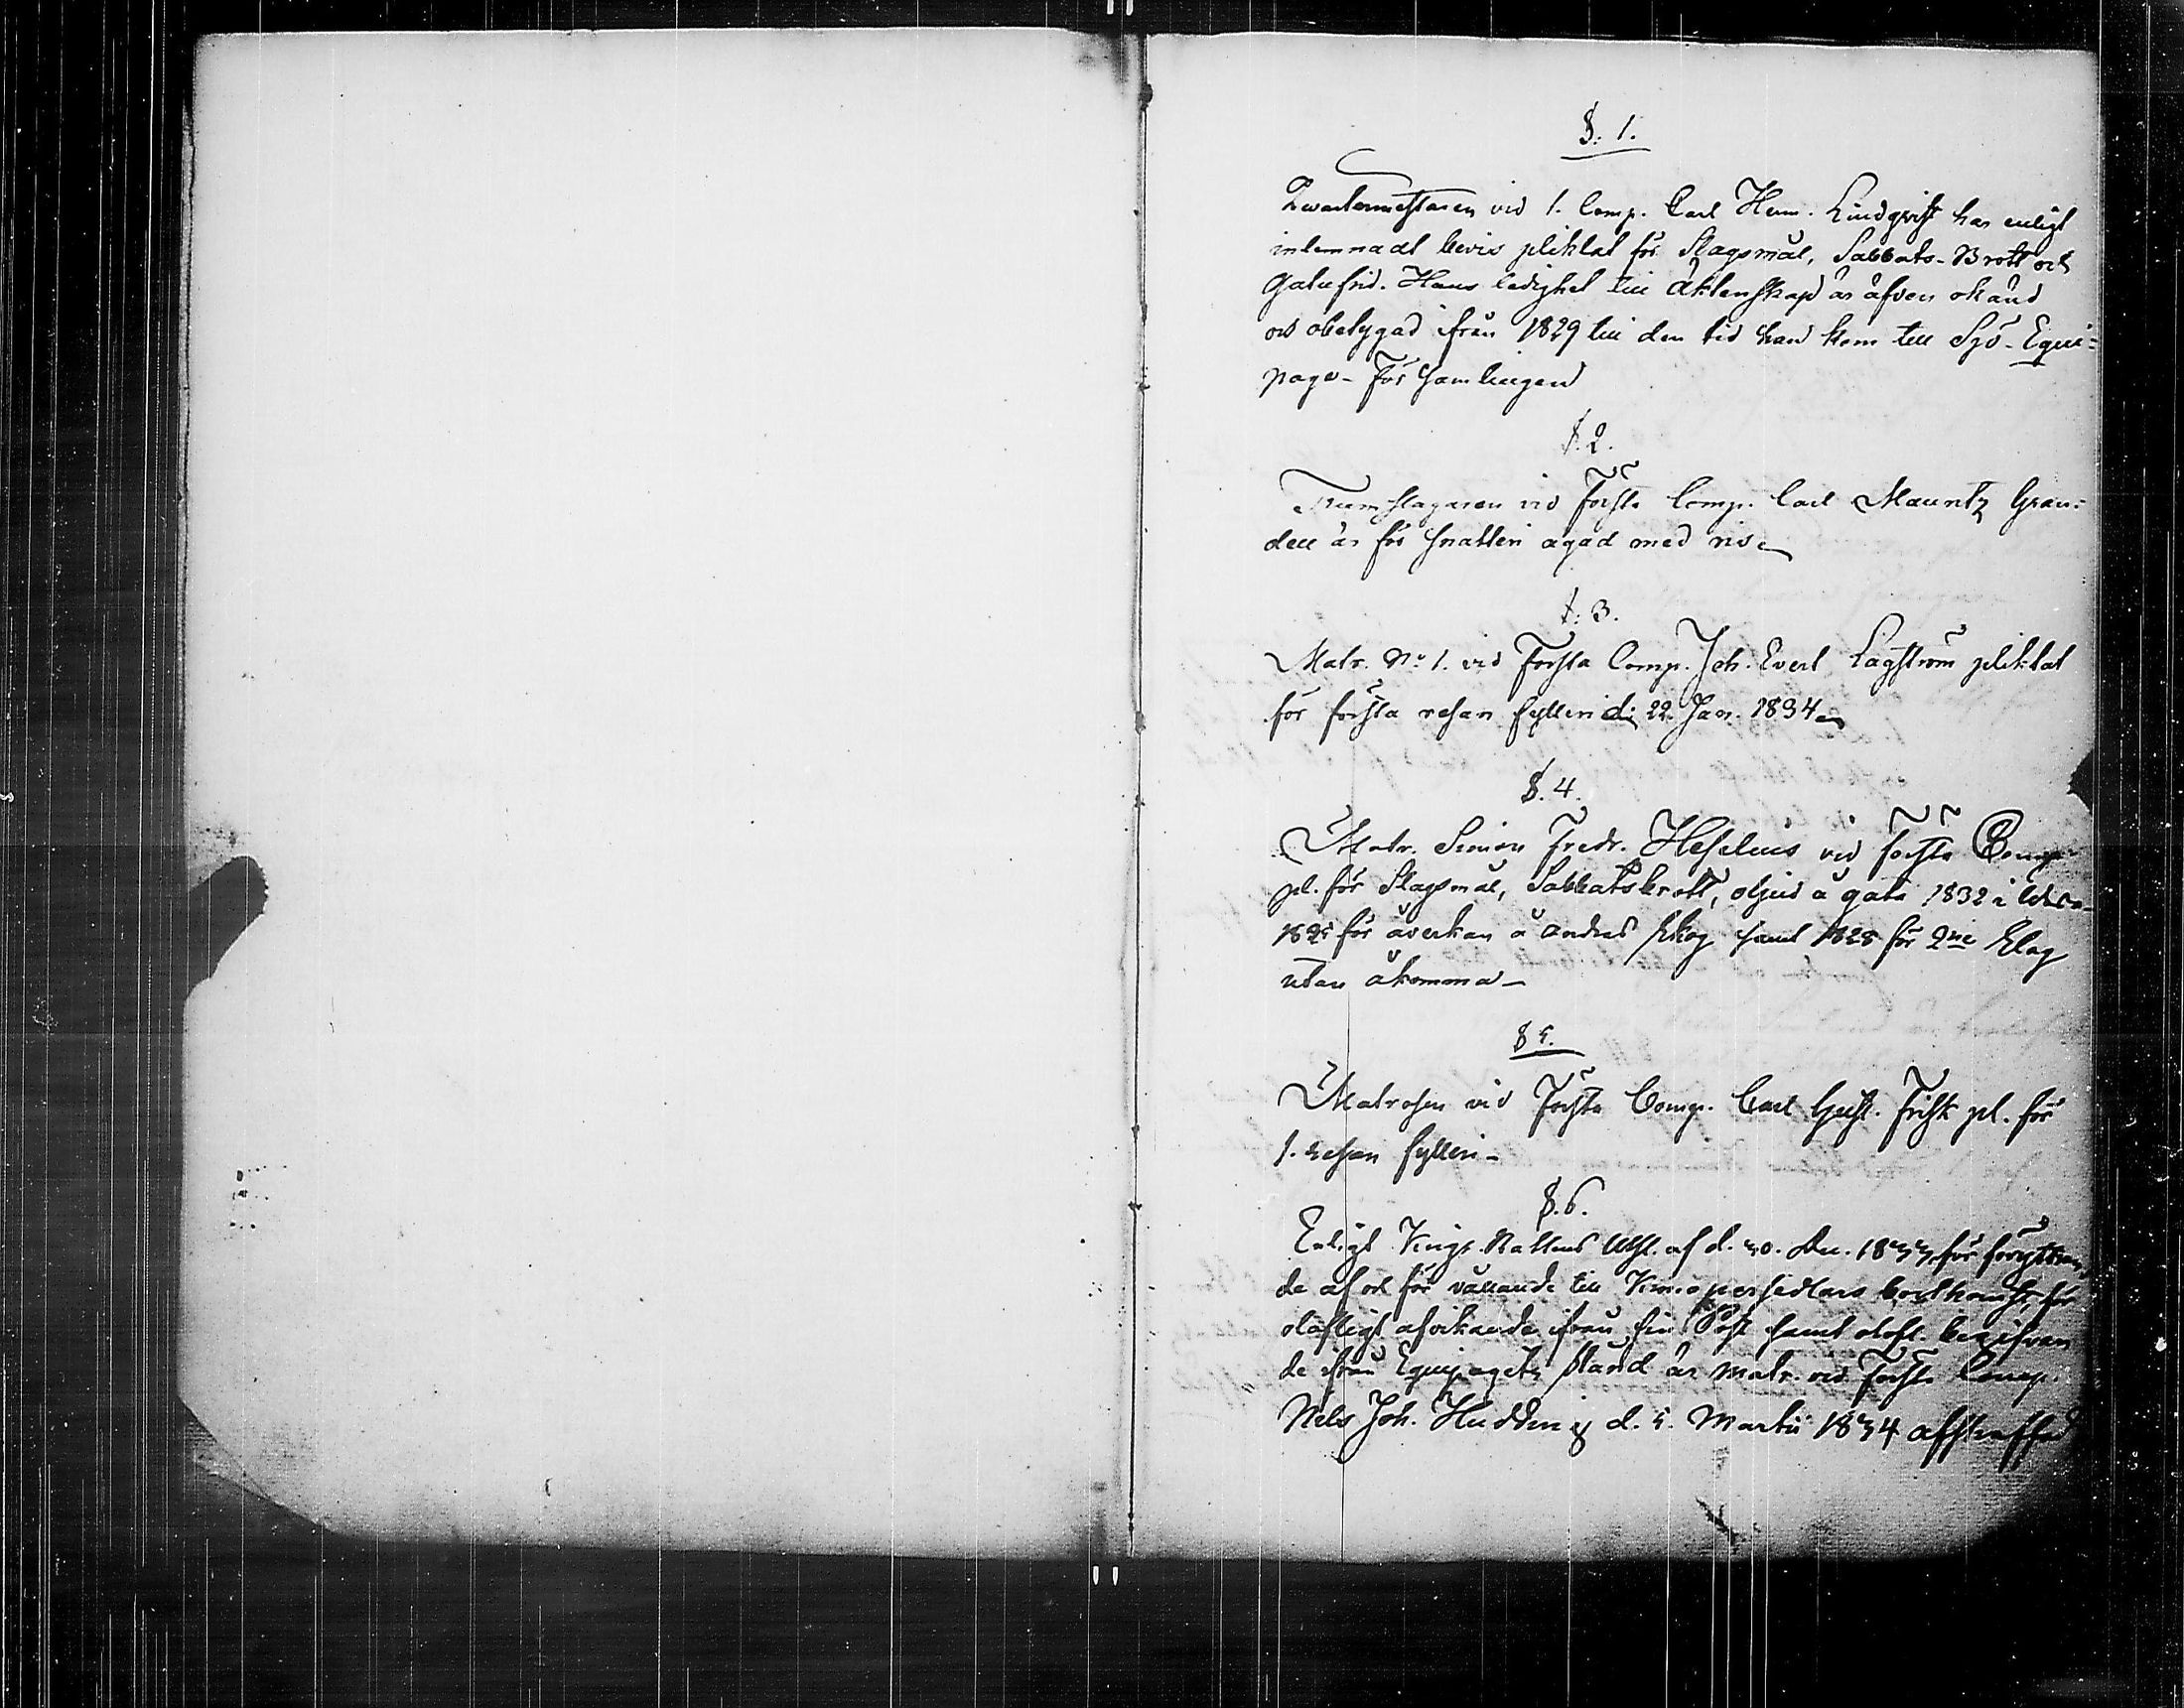 §. 1.
Qvartermästaren vid 1. Comp. Carl Herm. Lindqvist har enligt
inlemnadt bevis pliktat för Slagsmål, Sabbats-Brott och
Gatufrid. Hans ledighet till Äktenskap är äfven okänd
och obetygad ifrån 1829 till den tid han kom till Sjö-Equi-
page-Församlingen
§. 2.
Trumslagaren vid Första Comp. Carl Mauritz Gran-
dell är för snatteri agad med ris
§: 3.
Matr. No 1. vid Första Comp. Joh. Evert Lagström pliktat
för första resan fylleri d. 22 Jan. 1834
§. 4.
Matr. Simon Fredr. Heselius vid Första Comp.
pl. för Slagsmål, Sabbatsbrott, oljud å gata 1832 i
1825 för åverkan å andras skog samt 1828 för 2ne Slag
utan åkomma
§ 5.
Matrosen vid Första Comp. Carl Gust. Frisk pl. för
1. resan fylleri
§. 6.
Enligt Krigs Rättens Utsl. af d. 30. Dec. 1833 för förytt
de af och för vållande till persedlars bortkomst, för
olofligt afvikande ifrån sin Post samt olofl. begifvan
de ifrån Equipagets stånd är Matr. vid Första Comp.
Nils Joh. Hudding d. 5. Martii 1834 afstraffad